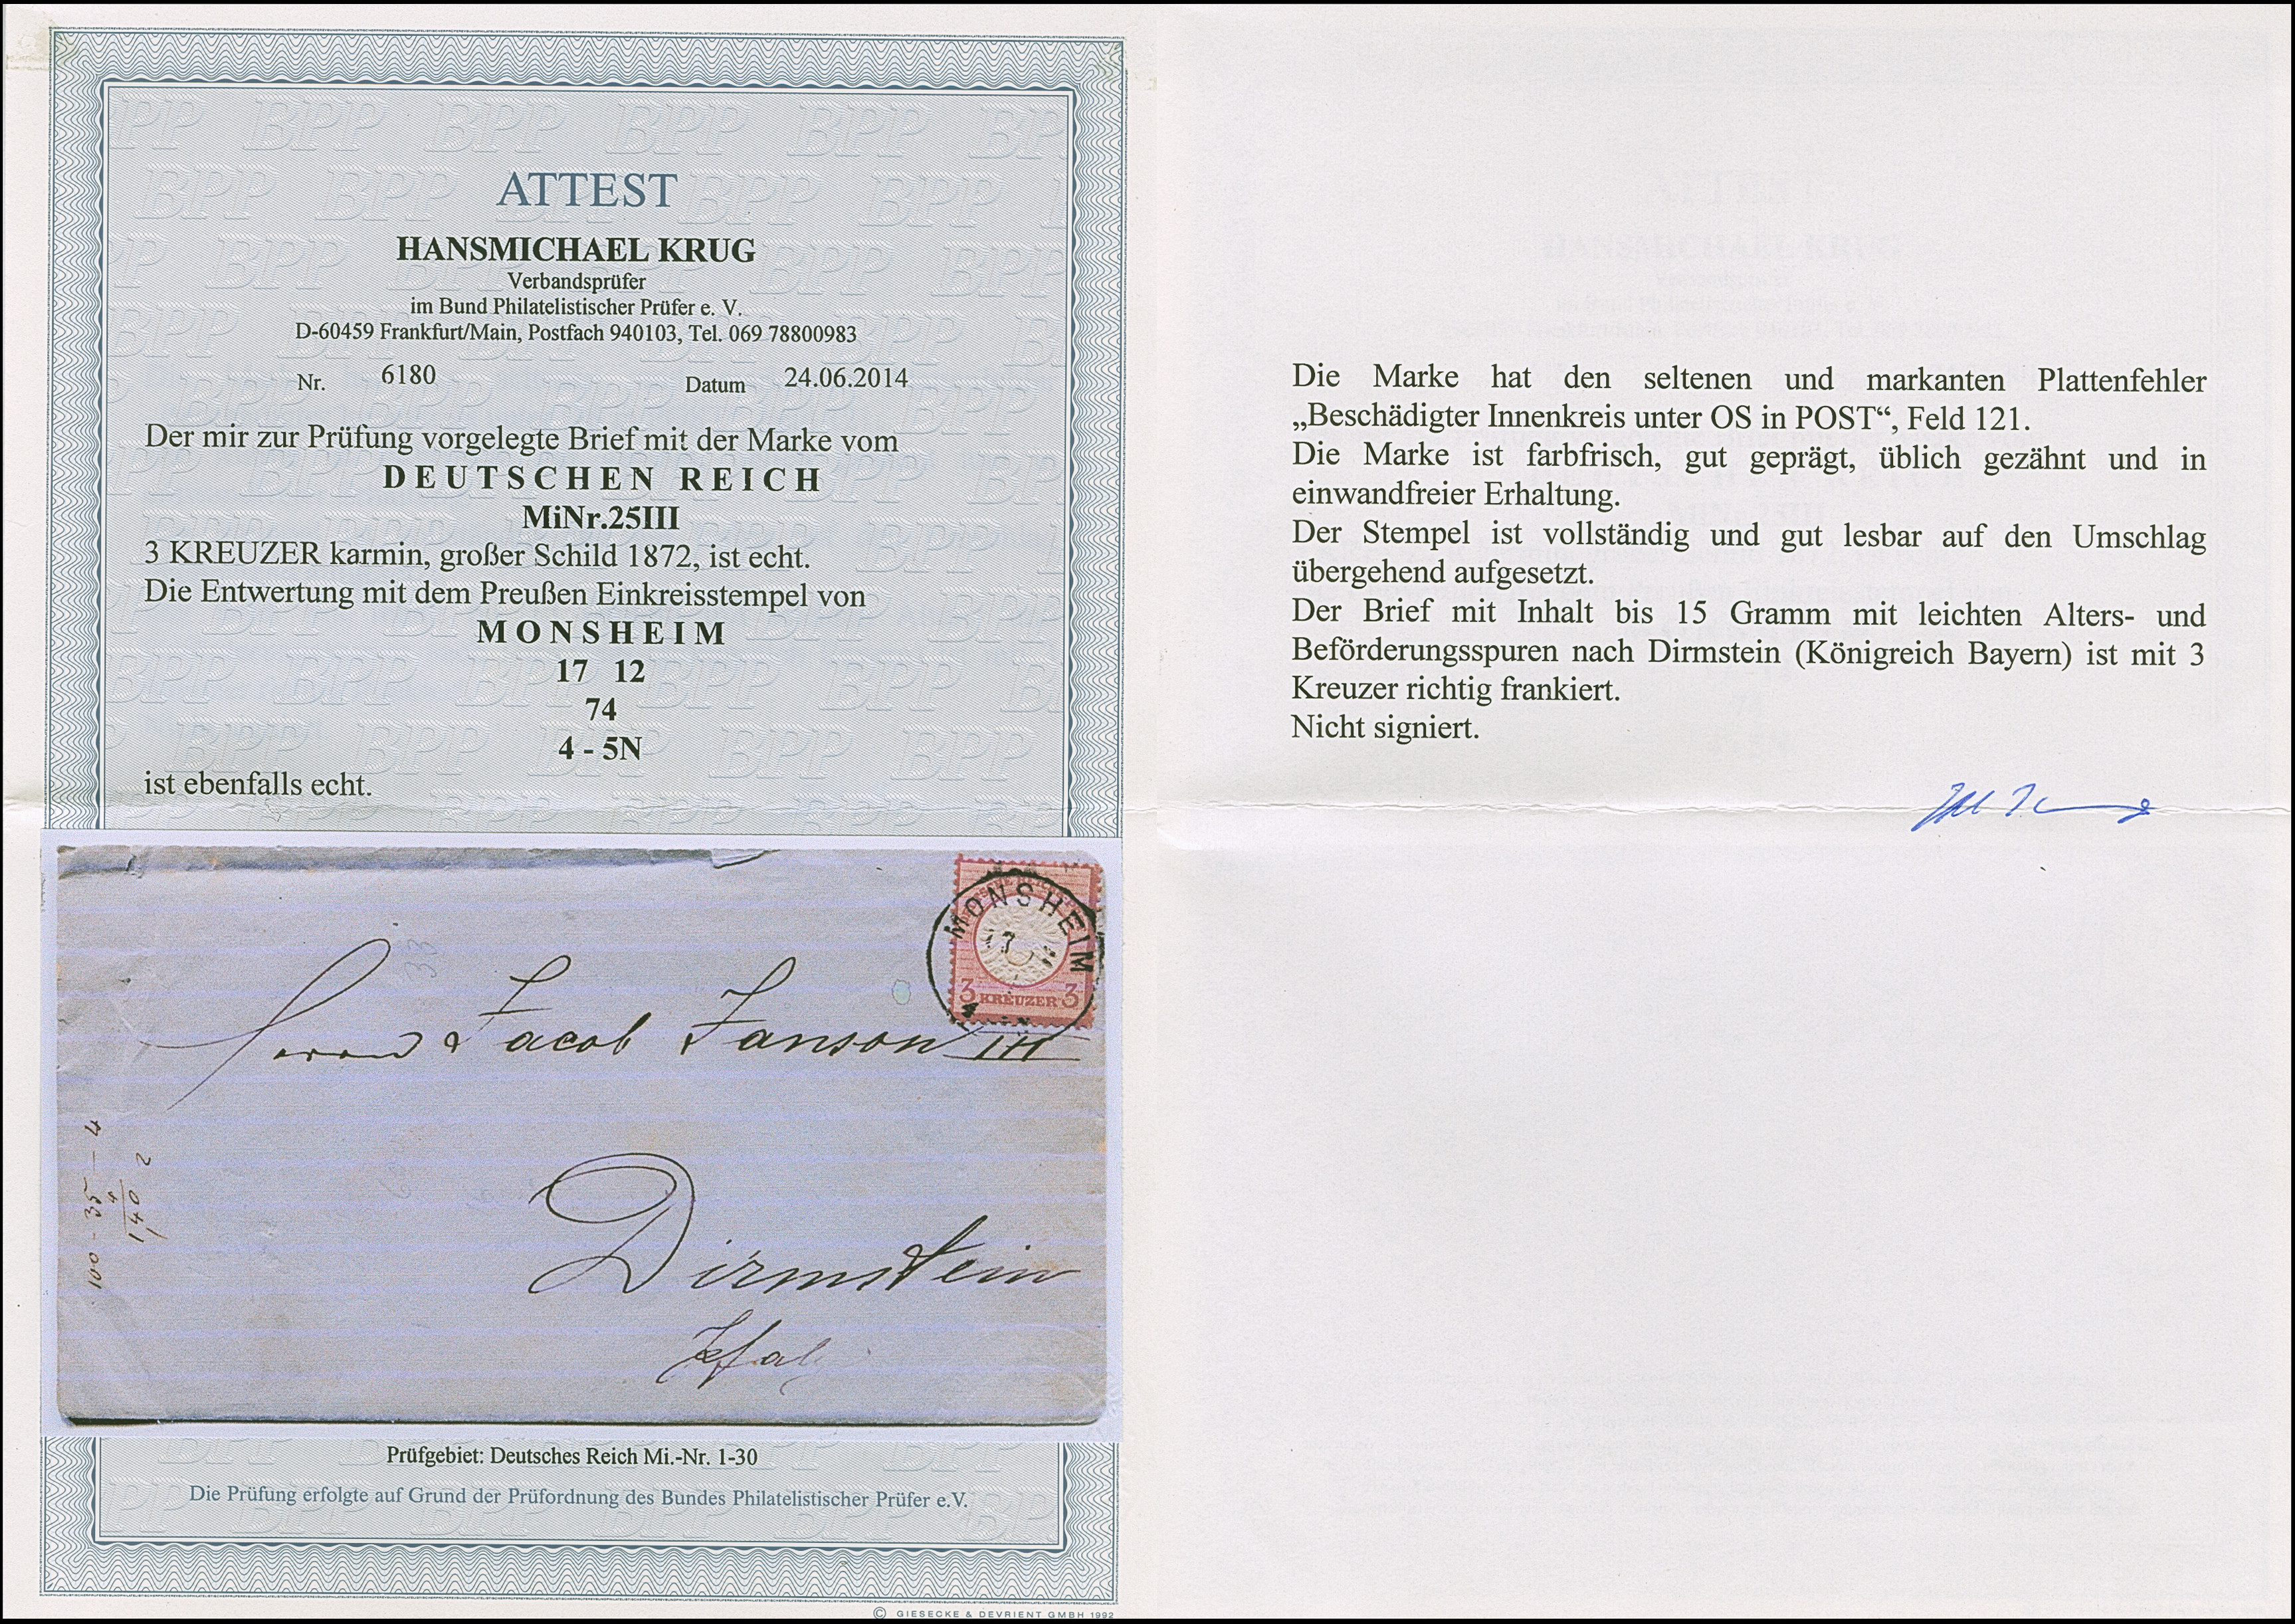 ATTEST
HANSMICHAEL KRUG
Verbandsprüfer
im Bund Philatelistischer Prüfer e. V.
D-60459 Frankfurt/Main, Postfach 940103, Tel. 069 78800983
Nr. 6180 Datum 24.06.2014
Der mir zur Prüfung vorgelegte Brief mit der Marke vom
DEUTSCHEN REICH
MiNr.25III
3 KREUZER karmin, großer Schild 1872, ist echt.
Die Entwertung mit dem Preußen Einkreisstempel von
MONSHEIM
17 12
74
4 - 5N
ist ebenfalls echt.
MONSHEIM
3 KREUZER 3
Herrn Jacob Janson III
Dirmstein
Pfalz
100 - 35 - 4
4
140 2
33
Prüfgebiet: Deutsches Reich Mi.-Nr. 1-30
Die Prüfung erfolgte auf Grund der Prüfordnung des Bundes Philatelistischer Prüfer e.V.
© GIESECKE & DEVRIENT GMBH 1992
Die Marke hat den seltenen und markanten Plattenfehler
„Beschädigter Innenkreis unter OS in POST“, Feld 121.
Die Marke ist farbfrisch, gut geprägt, üblich gezähnt und in
einwandfreier Erhaltung.
Der Stempel ist vollständig und gut lesbar auf den Umschlag
übergehend aufgesetzt.
Der Brief mit Inhalt bis 15 Gramm mit leichten Alters- und
Beförderungsspuren nach Dirmstein (Königreich Bayern) ist mit 3
Kreuzer richtig frankiert.
Nicht signiert.